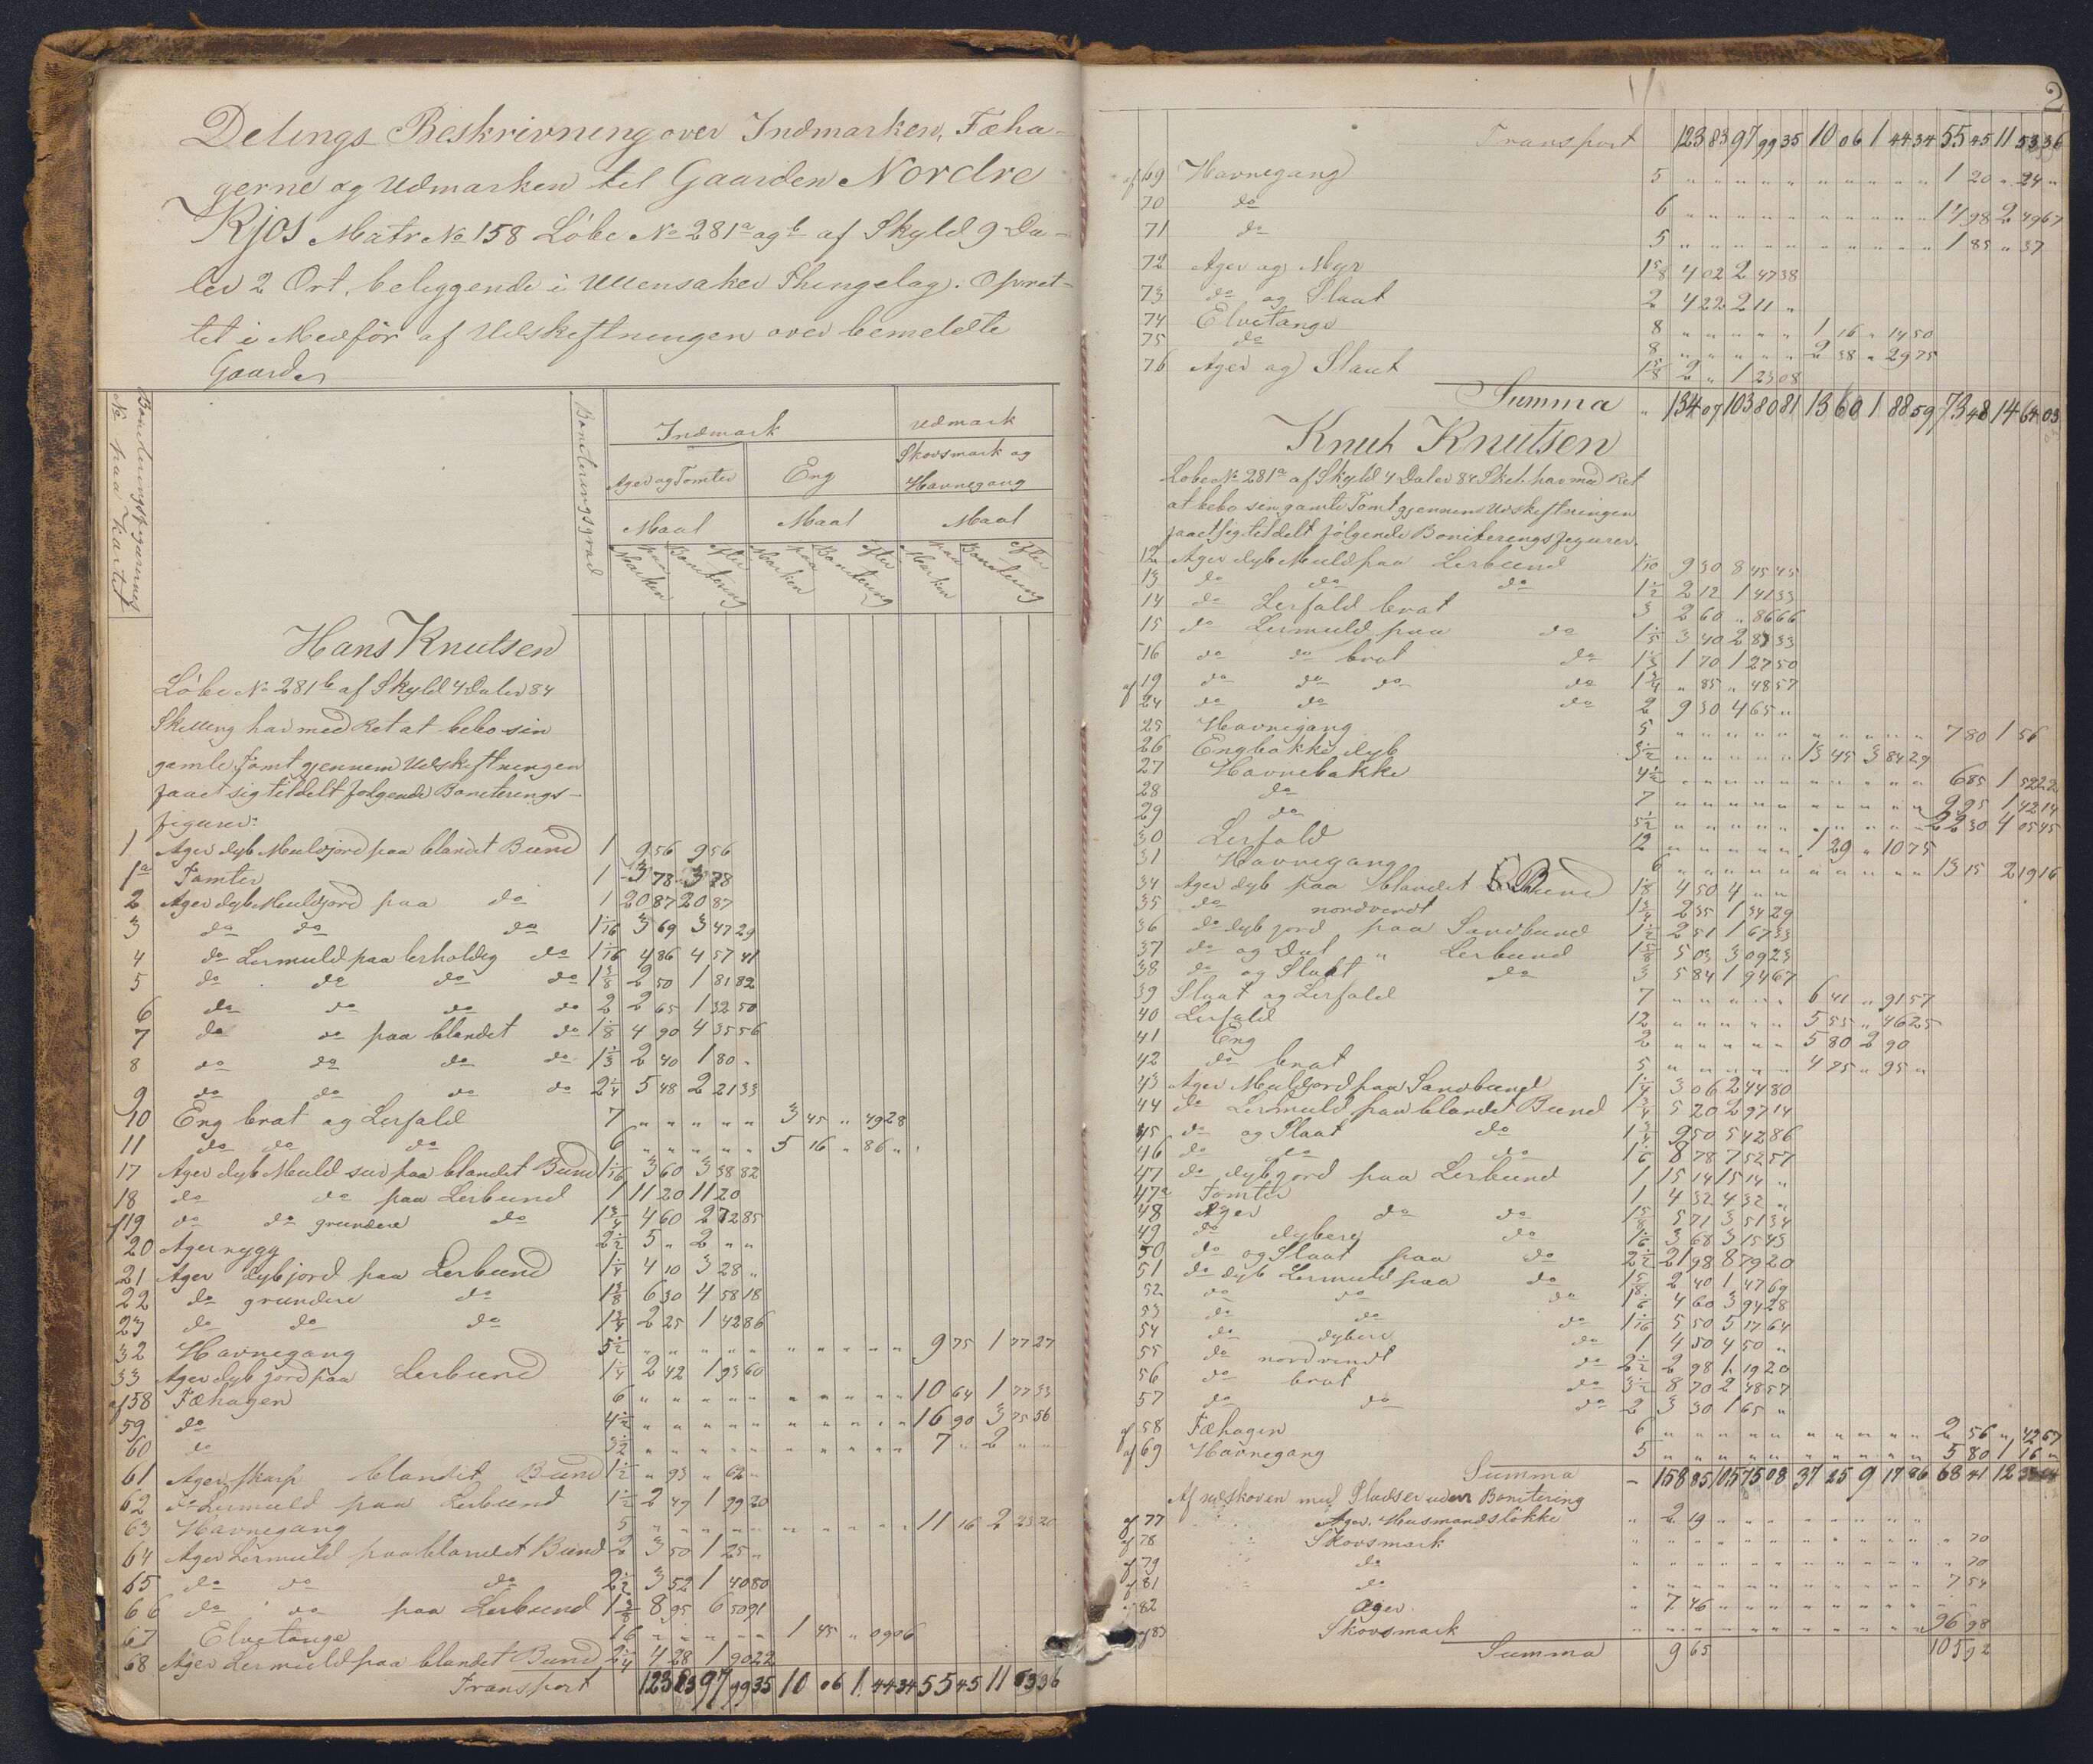 Delings Beskrivning over Indmarken, Fæha-
gerne og Udmarken til Gaarden Nordre
Kjos Matr No 158 Löbe No 281a og b af Skyld 9 Da-
ler 2 Ort, beliggende i Ullensaker Thingelag. Opret-
tet i Medför af Udskiftningen over bemeldte
Gaard.
Boniteringsfigurernes No paa Kartet
Boniteringsgrad
Indmark Udmark
Ager og Tomter Eng Skovsmark og Havnegang
Maal Maal Maal
paa Marken efter Bonitering paa Marken efter Bonitering paa Marken efter Bonitering
Hans Knutsen
Löbe No 281b af Skyld 4 Daler 84
Skilling har med Ret at bebo sin
gamle Tomt gjennem Udskiftningen
faaet sig tildelt følgende Boniterings-
figurer:
1 Ager dyb Muldjord paa blandet Bund 1 9 56 9 56
1a Tomter 1 3 78 3 78
2 Ager dyb Muldjord paa do 1 20 87 20 87
3 do do do 1 1/16 3 69 3 47 29
4 do Lermuld paa lerholdig do 1 1/16 4 86 4 57 41
5 do do do do 1 3/8 2 50 1 81 82
6 do do do do 2 2 65 1 32 50
7 do do paa blandet do 1 1/8 4 90 4 35 56
8 do do do do 1 1/3 2 40 1 80 "
9 do do do do 2 1/4 5 48 2 21 33
10 Eng brat og Lerfald 7 " " " " " 3 45 " 49 28
11 do do do 6 " " " " " 5 16 " 86 "
17 Ager dyb Muld sur paa blandet Bund 1 1/16 3 60 3 38 82
18 do do paa Lerbund 1 11 20 11 20
af 19 do do grundere do 1 3/4 4 60 2 72 85
20 Ager nygg 2 1/2 5 " 2 " "
21 Ager dyb jord paa Lerbund 1 1/4 4 10 3 28 "
22 do grundere do 1 3/8 6 30 4 58 18
23 do do do 1 3/4 2 25 1 42 86
32 Havnegang 5 1/2 " " " " " " " " " " 9 75 1 77 27
33 Ager dyb jord paa Lerbund 1 1/4 2 42 1 93 60
af 58 Fæhagen 6 " " " " " " " " " " 10 64 1 77 33
59 do 4 1/2 " " " " " " " " " " 16 90 3 75 56
60 do 3 1/2 " " " " " " " " " " 7 " 2 " "
61 Ager skarp blandet Bund 1 1/2 " 93 " 62 "
62 do Lermuld paa Lerbund 1 1/2 2 49 1 99 20
63 Havnegang 5 " " " " " " " " " " 11 16 2 23 20
64 Ager Lermuld paa blandet Bund 2 3 50 1 25 "
65 do do do 2 1/2 3 52 1 40 80
66 do do paa Lerbund 1 3/8 8 95 6 50 91
67 Elvetange 16 " " " " " 1 45 " 09 06
68 Ager Lermuld paa blandet Bund 2 1/4 4 28 1 90 22
Transport 123 83 97 99 35 10 06 1 44 34 55 45 11 53 36
2
Transport 123 83 97 99 35 10 06 1 44 34 55 45 11 53 36
af 69 Havnegang 5 " " " " " " " " " " 1 20 " 24 "
70 do 6 " " " " " " " " " " 14 98 2 49 67
71 do 5 " " " " " " " " " " 1 85 " 37
72 Ager og Myr 1 5/8 4 02 2 47 38
73 do og Slaat 2 4 22 2 11 "
74 Elvetange 8 " " " " " 1 16 " 14 50
75 do 8 " " " " " 2 38 " 29 75
76 Ager og Slaat 1 5/8 2 " 1 23 08
Summa " 134 07 103 80 81 13 60 1 88 59 73 48 14 64 03
Knut Knutsen
Løbe No 281a af Skyld 4 Daler 84 Skil. har med Ret
at bebo sin gamle Tomt gjennem Udskiftningen
faaet sig tildelt følgende Boniterings figurer.
12 Ager dyb Muld paa Lerbund 1 1/10 9 30 8 45 45
13 do do do 1 1/2 2 12 1 41 33
14 do Lerfald brat 3 2 60 " 86 66
15 do Lermuld paa do 1 1/5 3 40 2 83 33
16 do do brat do 1 1/3 1 70 1 27 50
af 19 do do do do 1 3/4 " 85 " 48 57
24 do do do 2 9 30 4 65 "
25 Havnigang 5 " " " " " " " " " " 7 80 1 56
26 Engbakke dyb 3 1/2 " " " " " 13 45 3 84 29
27 Havnebakke 4 1/2 " " " " " " " " " " 6 85 1 52 22
28 do 7 " " " " " " " " " " 9 95 1 42 14
29 do 5 1/2 " " " " " " " " " " 22 30 4 05 45
30 Lerfald 12 " " " " " 1 29 " 10 75
31 Havnegang 6 " " " " " " " " " " 13 15 2 19 16
34 Ager dyb paa blandet Bund 1 1/8 4 50 4 " "
35 do nordvendt 1 3/4 2 35 1 34 29
36 do dyb jord paa Sandbund 1 1/2 2 51 1 67 33
37 do og Dal " Lerbund 1 5/8 5 03 3 09 23
38 do og Slaat do 3 5 84 1 94 67
39 Slaat og Lerfald 7 " " " " " 6 41 " 91 57
40 Lerfald 12 " " " " " 5 55 " 46 25
41 Eng 2 " " " " " 5 80 2 90
42 do brat 5 " " " " " 4 75 " 95 "
43 Ager Muldjord paa Sandbund 1 1/4 3 06 2 44 80
44 do Lermuld paa blandet Bund 1 3/4 5 20 2 97 14
45 do og Slaat do 1 3/4 9 50 5 42 86
46 do do do 1 1/6 8 78 7 52 57
47 do dyb jord paa Lerbund 1 15 14 15 14 "
47a Tomter 1 4 32 4 32 "
48 Ager do do 1 5/8 5 71 3 51 34
49 do dybere do 1 1/6 3 68 3 15 43
50 do og Slaat paa do 2 1/2 21 98 8 79 20
51 do dyb Lermuld paa do 1 5/8 2 40 1 47 69
52 do do do 1 1/6 4 60 3 94 28
53 do do do 1 1/16 5 50 5 17 64
54 do dybere do 1 4 50 4 50 "
55 do nordvendt do 2 1/2 2 98 1 19 20
56 do brat do 3 1/2 8 70 2 48 57
57 do do do 2 3 30 1 65 "
af 58 Fæhagen 6 " " " " " " " " " " 2 56 " 42 67
af 69 Havnegang 5 " " " " " " " " " " 5 80 1 16 "
Summa - 158 85 105 75 08 37 25 9 17 86 68 41 12
Af udskoven med Pladser uden Bonitering
af 77 Ager. Husmandsløkke " 2 19 " " " " " " " "
af 78 Skovsmark " " " " " " " " " " " 70
af 79 do " " " " " " " " " " " 70
af 81 do " " " " " " " " " " 7 54
82 Ager " 7 46 " " " " " " " " " "
af 83 Skovsmark " " " " " " " " " " 96 98
Summa 9 65 105 92